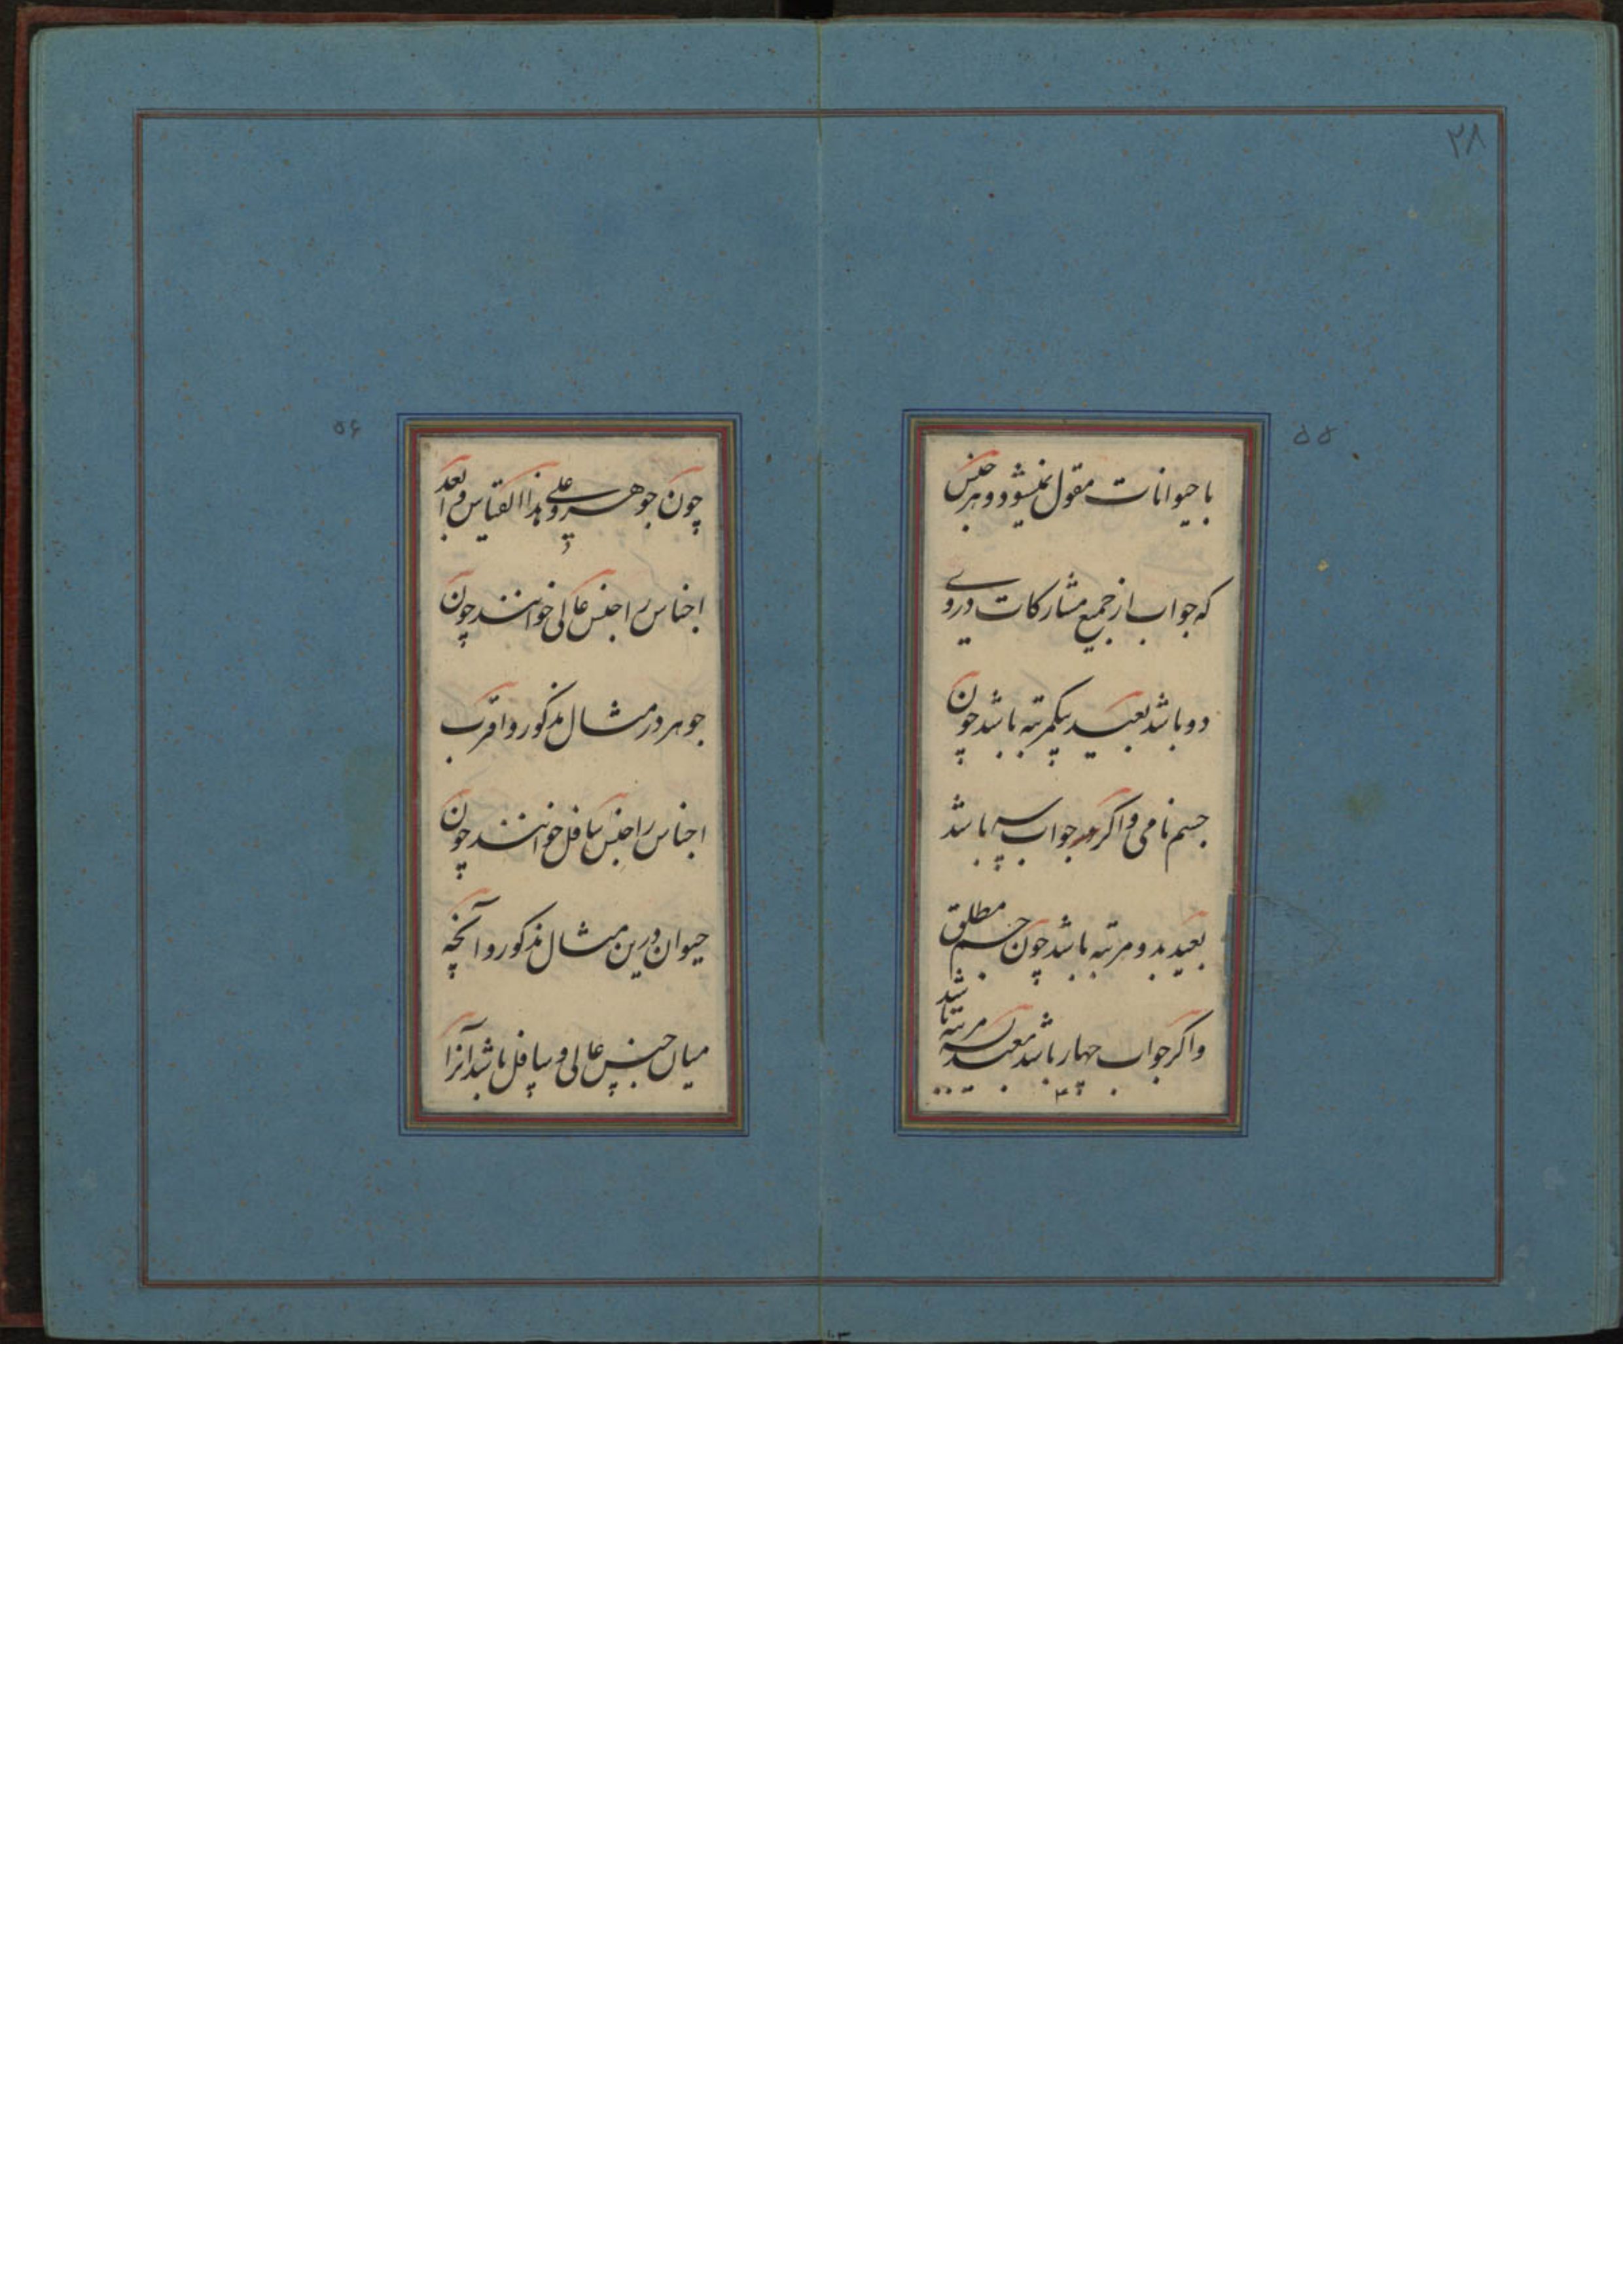 ۲۸
۵۵
با حیوانات مقول نمیشود و هر جنس
که جواب از جمیع مشارکات دروی
دو باشد بعید بیکمرتبه باشد چون
جسم نامی و اگر در جواب سه باشد
بعید بدو مرتبه باشد چون جسم مطلق
و اگر جواب چهار باشد بعید بسه مرتبه باشد
۵۶
چون جوهر و علی هذا القیاس و ابعد
اجناس را جنس عالی خوانند چون
جوهر در مثال مذکور و اقرب
اجناس را جنس سافل خوانند چون
حیوان درین مثال مذکور و آنچه
میان جنس عالی و سافل باشد آنرا